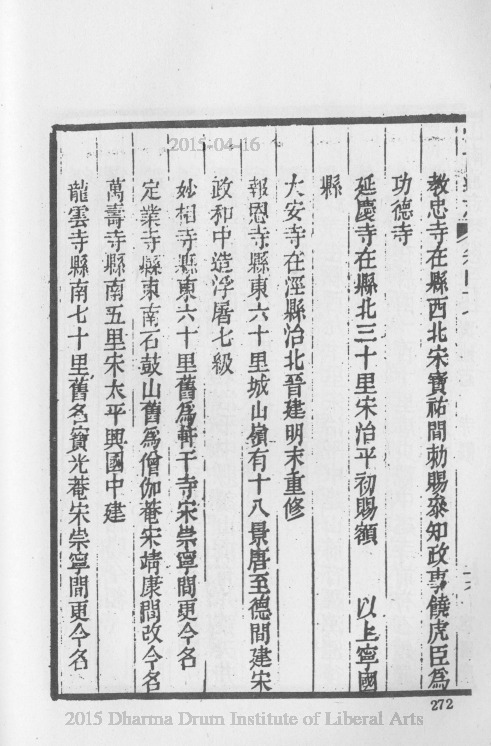 2015-04-16
教忠寺在縣西北宋寶祐間勅賜叅知政事饒虎臣爲
功德寺
延慶寺在縣北三十里宋治平初賜額 以上寧國
縣
大安寺在涇縣治北晉建明末重修
報恩寺縣東六十里城山嶺有十八景唐至德間建宋
政和中造浮屠七級
妙相寺縣東六十里舊爲軒干寺宋崇寧間更今名
定業寺縣東南石鼓山舊爲僧伽菴宋靖康間改今名
萬壽寺縣南五里宋太平興國中建
龍雲寺縣南七十里舊名寶光菴宋崇寧間更今名
272
2015 Dharma Drum Institute of Liberal Arts